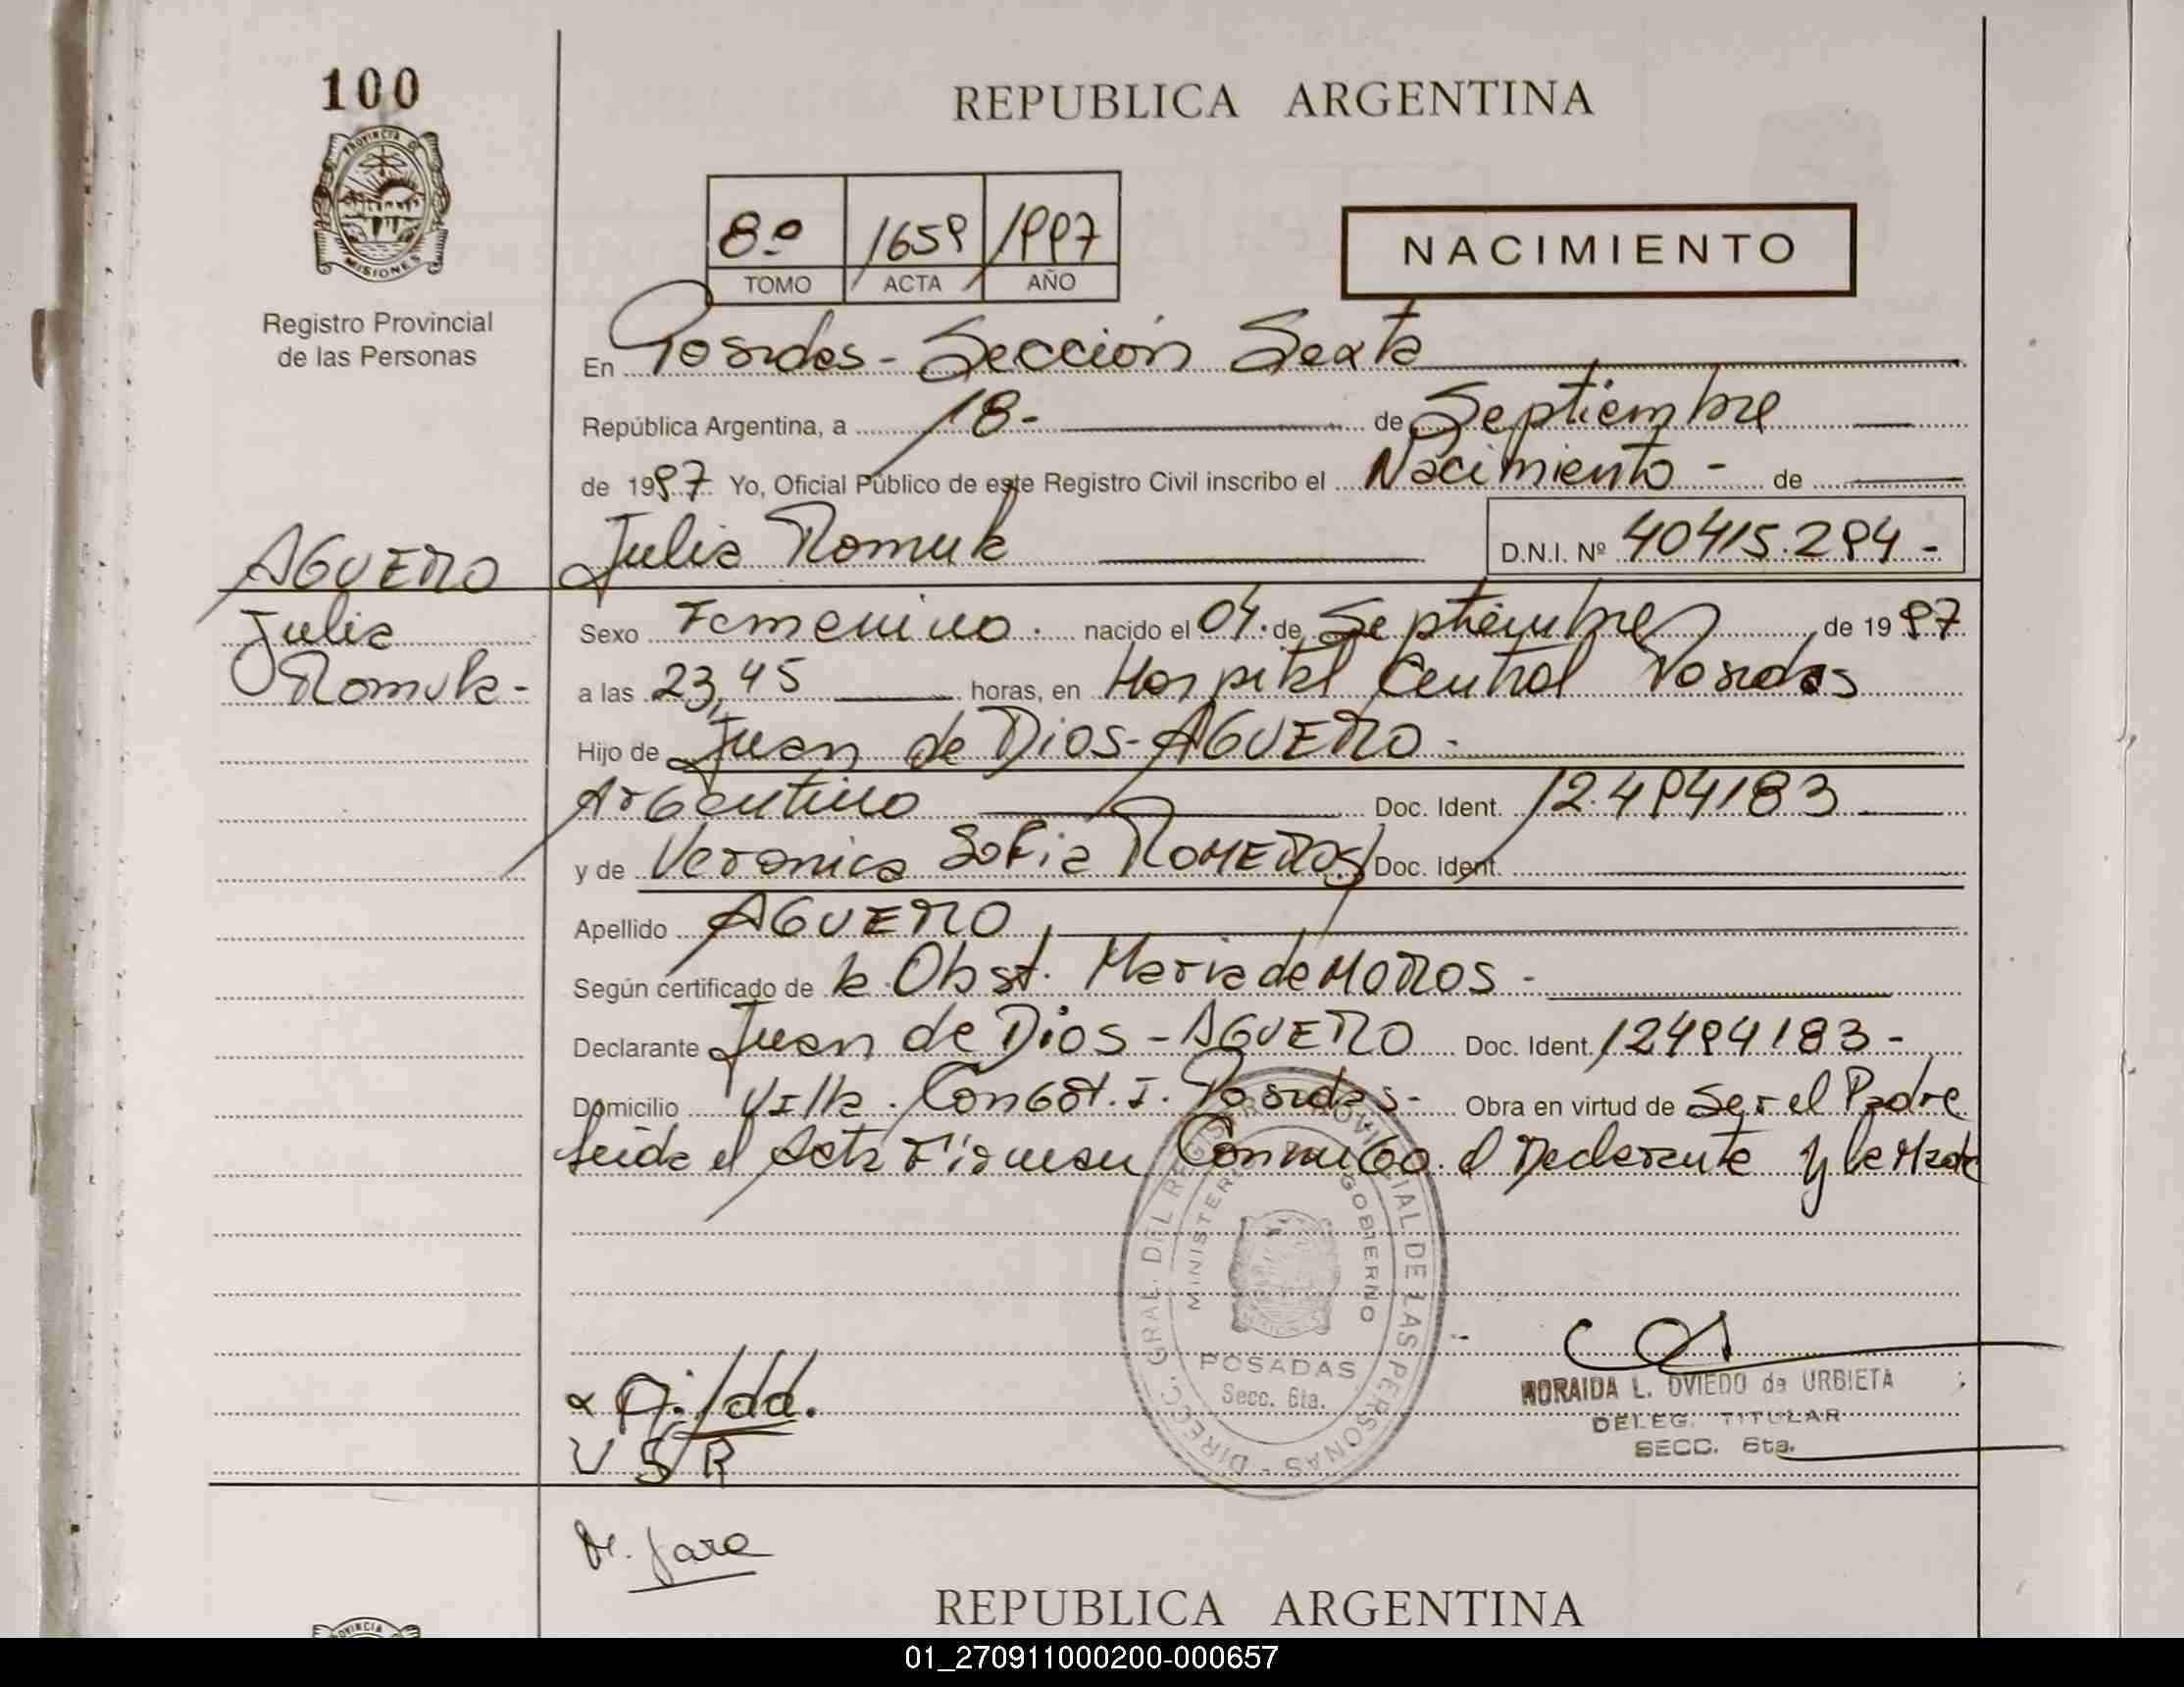 100
PROVINCIA D
MISIONES
Registro Provincial
de las Personas
REPUBLICA ARGENTINA
8º 1659 1997
TOMO ACTA AÑO
NACIMIENTO
En Posadas - Sección Sexta
República Argentina, a 18- de Septiembre
de 1997 Yo, Oficial Público de este Registro Civil inscribo el Nacimiento - de
Julia Romula D.N.I. Nº 40415.294-
AGUERO
Julia
Romula-
Sexo Femenino. nacido el 04. de Septiembre de 1997
a las 23,45 horas, en Hospital Central Posadas
Hijo de Juan de Dios-AGUERO-
Argentino Doc. Ident. 12.494183
y de Veronica Sofia ROMERO Doc. Ident.
Apellido AGUERO
Según certificado de la Obst. Maria de MORROS -
Declarante Juan de Dios - AGUERO Doc. Ident. 12494183-
Domicilio Villa. I. Posadas- Obra en virtud de Ser el Padre
Leida el Acta Firman Conmigo el Declarante y la Madre
DIRECC. GRAL. DEL REGISTRO PROVINCIAL DE LAS PERSONAS -
MINISTERIO DE GOBIERNO
MISIONES
POSADAS
Secc. 6ta.
NORAIDA L. OVIEDO de URBIETA
DELEG. TITULAR
SECC. 6ta.
V S R
M. Jara
REPUBLICA ARGENTINA
PROVINCIA
01_270911000200-000657